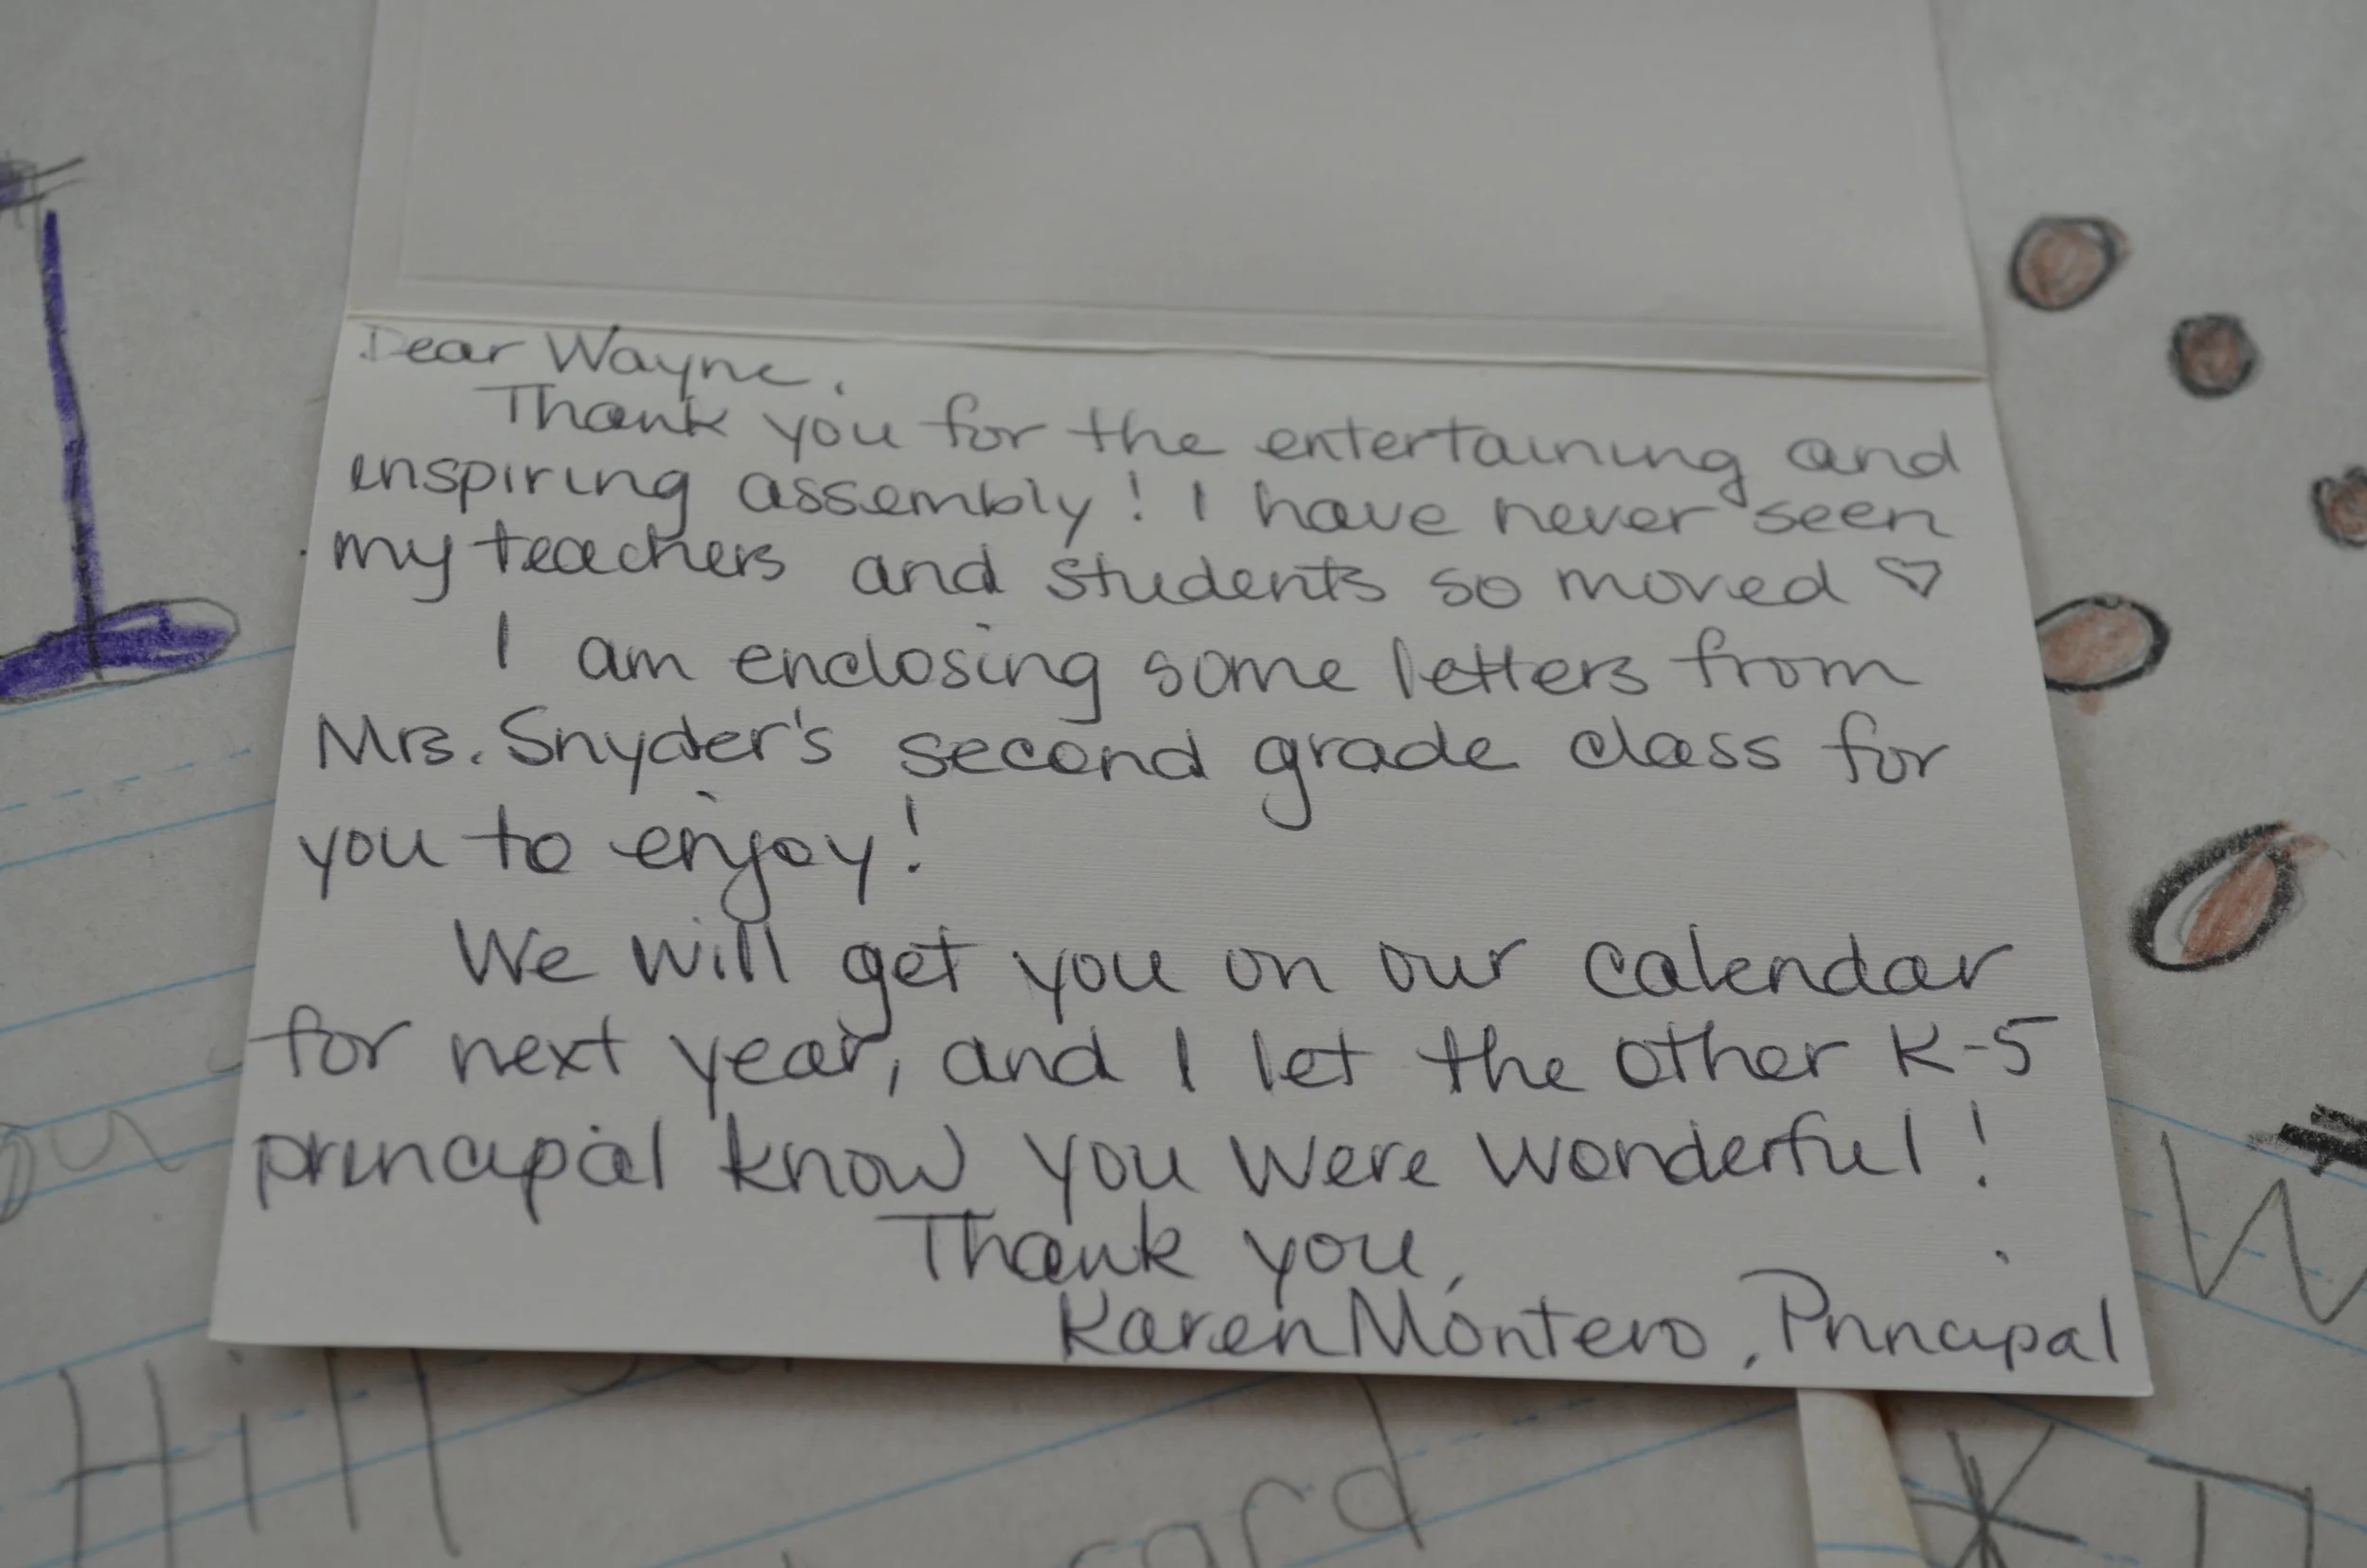 Dear Wayne,
Thank you for the entertaining and
inspiring assembly! I have never seen
my teachers and students so moved ♡
I am enclosing some letters from
Mrs. Snyder's second grade class for
you to enjoy!
We will get you on our calendar
for next year, and I let the other K-5
principal know you were wonderful!
Thank you,
Karen Montero, Principal
Hill